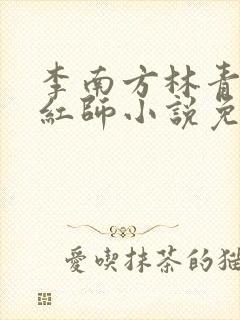 李南方林青
紅師小説免
愛喫抹茶的猫